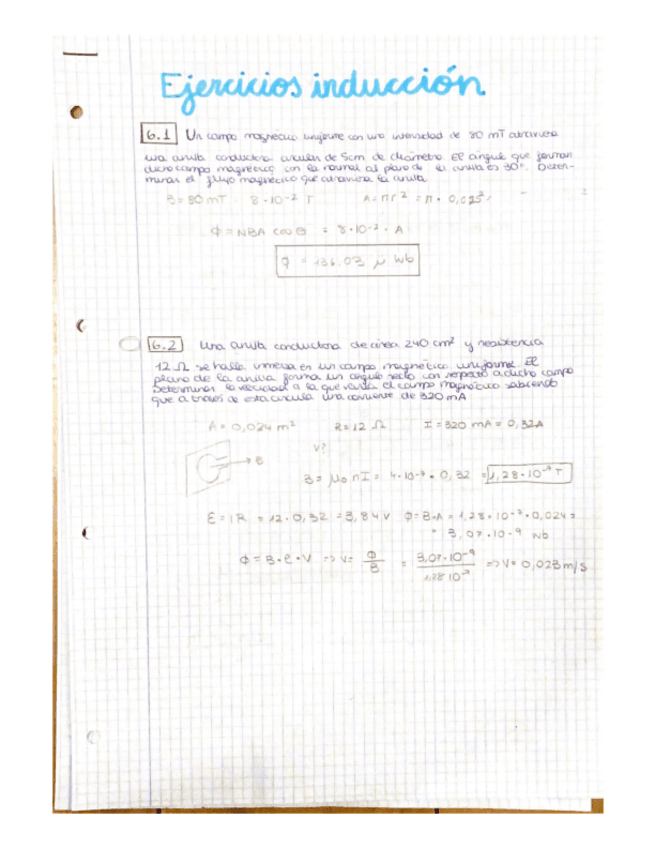 Ejercicios inducción
6.1 Un campo magnético uniforme con una intensidad de 80 mT atraviesa
una anilla conductora circular de 5cm de diámetro. El ángulo que forman
dicho campo magnético con la normal al plano de la anilla es 30°. Deter-
minar el flujo magnético que atraviesa la anilla
B = 80 mT 8·10⁻² T A = πr² = π · 0,025²
Φ = NBA cos θ = 8·10⁻² · A
= 136.03 μ Wb
6.2 Una anilla conductora de área 240 cm² y resistencia
12 Ω se halla inmersa en un campo magnético uniforme. El
plano de la anilla forma un ángulo recto con respecto a dicho campo
Determinar la velocidad a la que varía el campo magnético sabiendo
que a través de esta circula una corriente de 320 mA
A = 0,024 m² R = 12 Ω I = 320 mA = 0,32A
B V?
B = μ₀ n I = 4·10⁻⁷ · 0,32 = 1,28·10⁻⁷ T
ε = IR = 12·0,32 = 3,84 V Φ = B·A = 1,28·10⁻⁷·0,024 =
= 3,07·10⁻⁹ Wb
Φ = B·l·V => V = Φ/B = 3,07·10⁻⁹/1,28·10⁻⁷ => V = 0,023 m/s